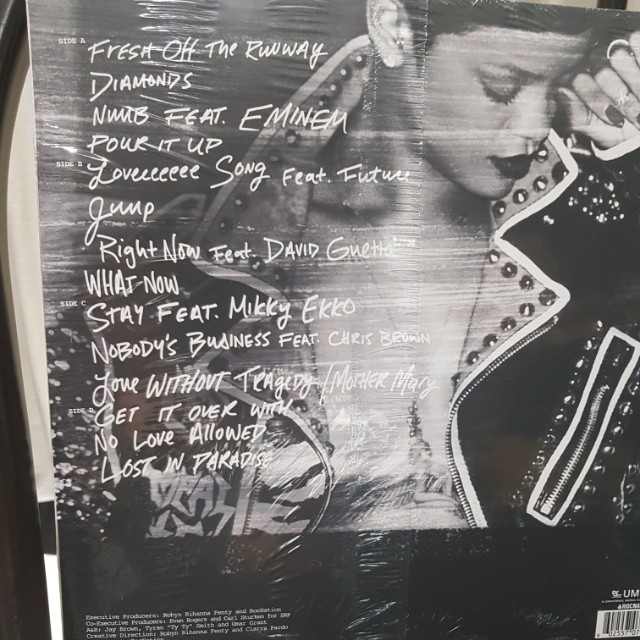 SIDE A
FRESH OFF THE RUNWAY
DIAMONDS
NUMB FEAT. EMINEM
POUR IT UP
SIDE B
Loveeeeeee Song Feat. Future
Jump
Right Now Feat. DAVID Guetta
WHAT NOW
SIDE C
STAY FEAT. MIKKY EKKO
NOBODY'S BUSINESS FEAT. CHRIS BROWN
Love WITHOUT TRAGEDY / MOTHER Mary
SIDE D
GET IT OVER WITH
NO LOVE ALLOWED
LOST IN PARADISE
Executive Producers: Robyn Rihanna Fenty and RocNation
Co-Executive Producers: Evan Rogers and Carl Sturken for SRP
A&R: Jay Brown, Tyran "Ty Ty" Smith and Omar Grant
Creative Direction: Robyn Rihanna Fenty and Ciarra Pardo
UM